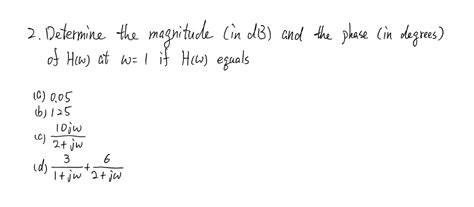 2. Determine the magnitude (in dB) and the phase (in degrees)
of H(ω) at ω = 1 if H(ω) equals
(a) 0.05
(b) 125
(c) 10jω / 2 + jω
(d) 3 / 1 + jω + 6 / 2 + jω